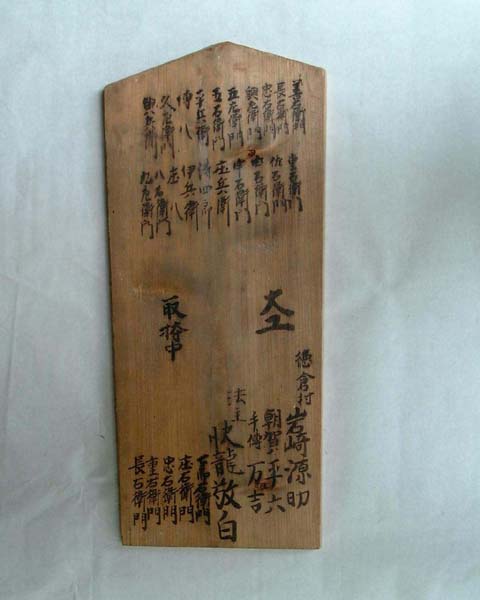 善右衛門
長右衛門
忠右衛門
五左衛門
五右衛門
平兵衛
傳八
久左衛門
重右衛門
佐右衛門
忠右衛門
中右衛門
庄兵衛
傳四郎
伊兵衛
庄八
八右衛門
大工
徳倉村
岩﨑源助
朝賀平六
手傳万吉
取持中
法主
快龍敬白
庄右衛門
忠右衛門
重右衛門
長右衛門